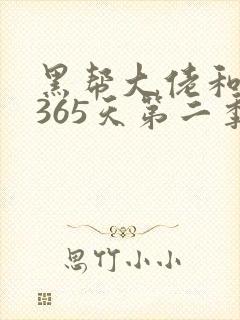 黑帮大佬和
365天第二季
思竹小小